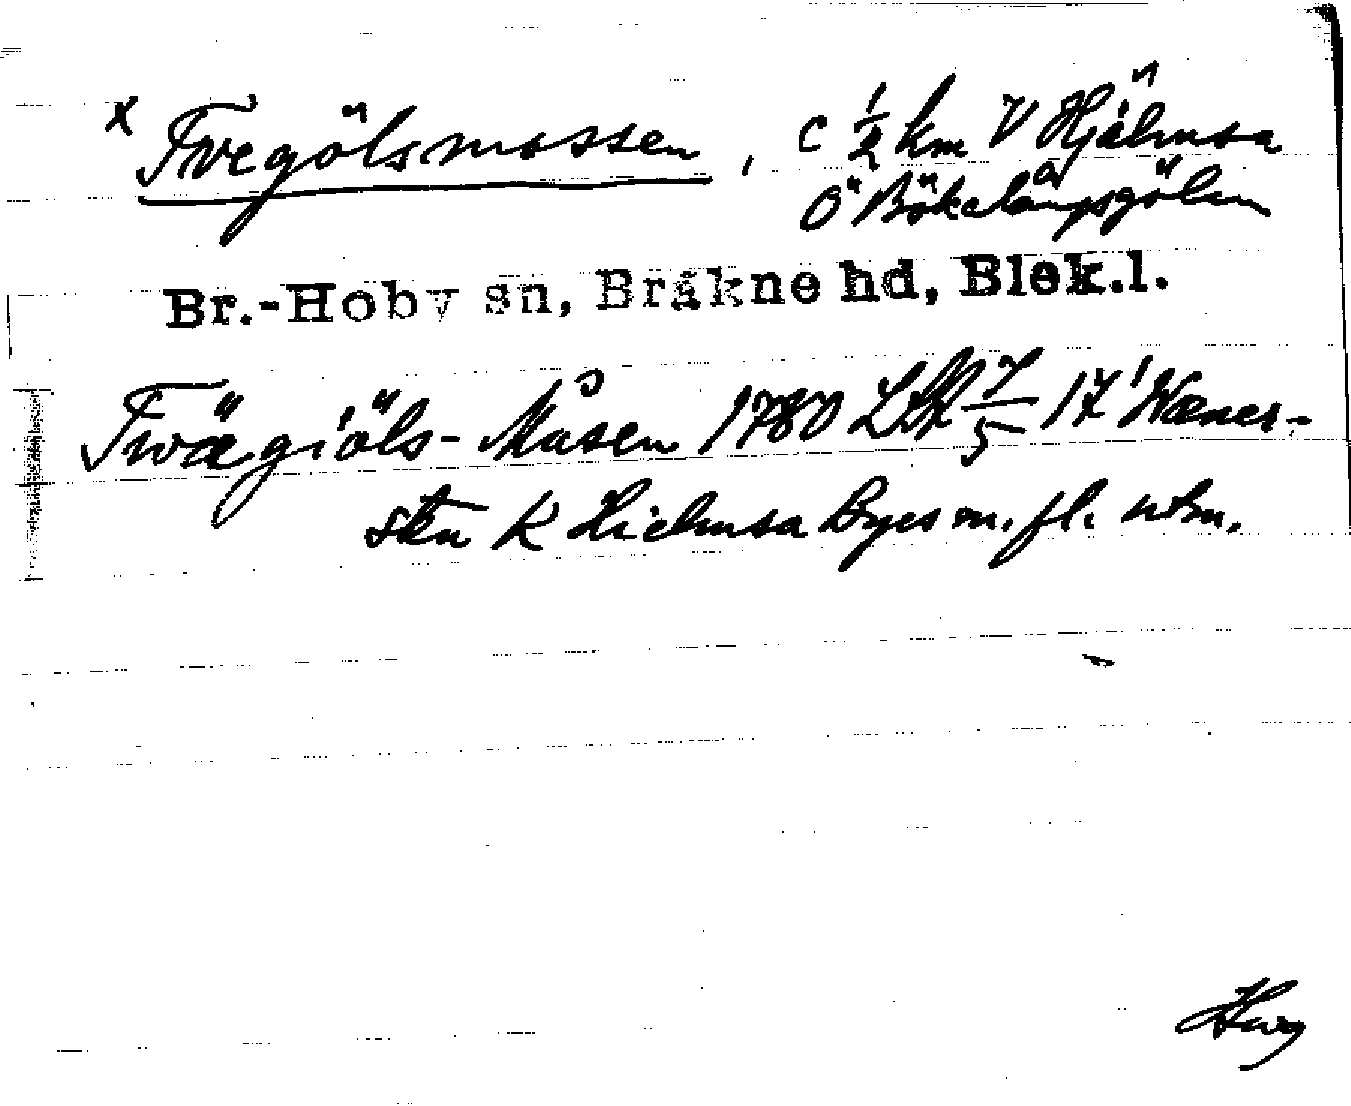 x Tvegölsmossen, c ½ km V Hjälmsa
Ö Bökelångsgölen
Br.-Hoby sn, Bräkne hd, Blek.l.
Twägiöls-Måsen 1780 LSA 7/5 17' Wæner-
sku K Hielmsa Byes m. fl. utm.